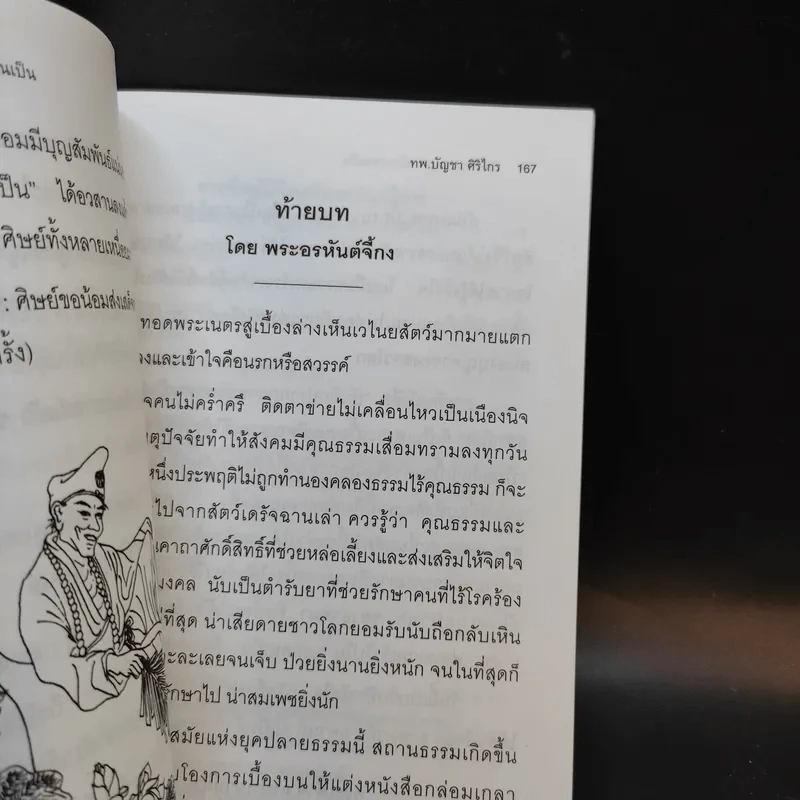 นเป็น
อมมีบุญสัมพันธ์
ป็น" ได้อวสานลง
ศิษย์ทั้งหลายเหนื่อย
: ศิษย์ขอน้อมส่งเสด็จ
รั้ง)
ทพ.บัญชา ศิริไกร 167
ท้ายบท
โดย พระอรหันต์จี้กง
ทอดพระเนตรสู่เบื้องล่างเห็นเวไนยสัตว์มากมายแตก
งและเข้าใจคือนรกหรือสวรรค์
จคนไม่คร่ำครึ ติดตาข่ายไม่เคลื่อนไหวเป็นเนืองนิจ
ตุปัจจัยทำให้สังคมมีคุณธรรมเสื่อมทรามลงทุกวัน
หนึ่งประพฤติไม่ถูกทำนองคลองธรรมไร้คุณธรรม ก็จะ
ไปจากสัตว์เดรัจฉานเล่า ควรรู้ว่า คุณธรรมและ
นคาถาศักดิ์สิทธิ์ที่ช่วยหล่อเลี้ยงและส่งเสริมให้จิตใจ
มงคล นับเป็นตำรับยาที่ช่วยรักษาคนที่ไร้โรคร้อง
ที่สุด น่าเสียดายชาวโลกยอมรับนับถือกลับเหิน
ะละเลยจนเจ็บ ป่วยยิ่งนานยิ่งหนัก จนในที่สุดก็
รักษาไป น่าสมเพชยิ่งนัก
สมัยแห่งยุคปลายธรรมนี้ สถานธรรมเกิดขึ้น
บโองการเบื้องบนให้แต่งหนังสือกล่อมเกลา